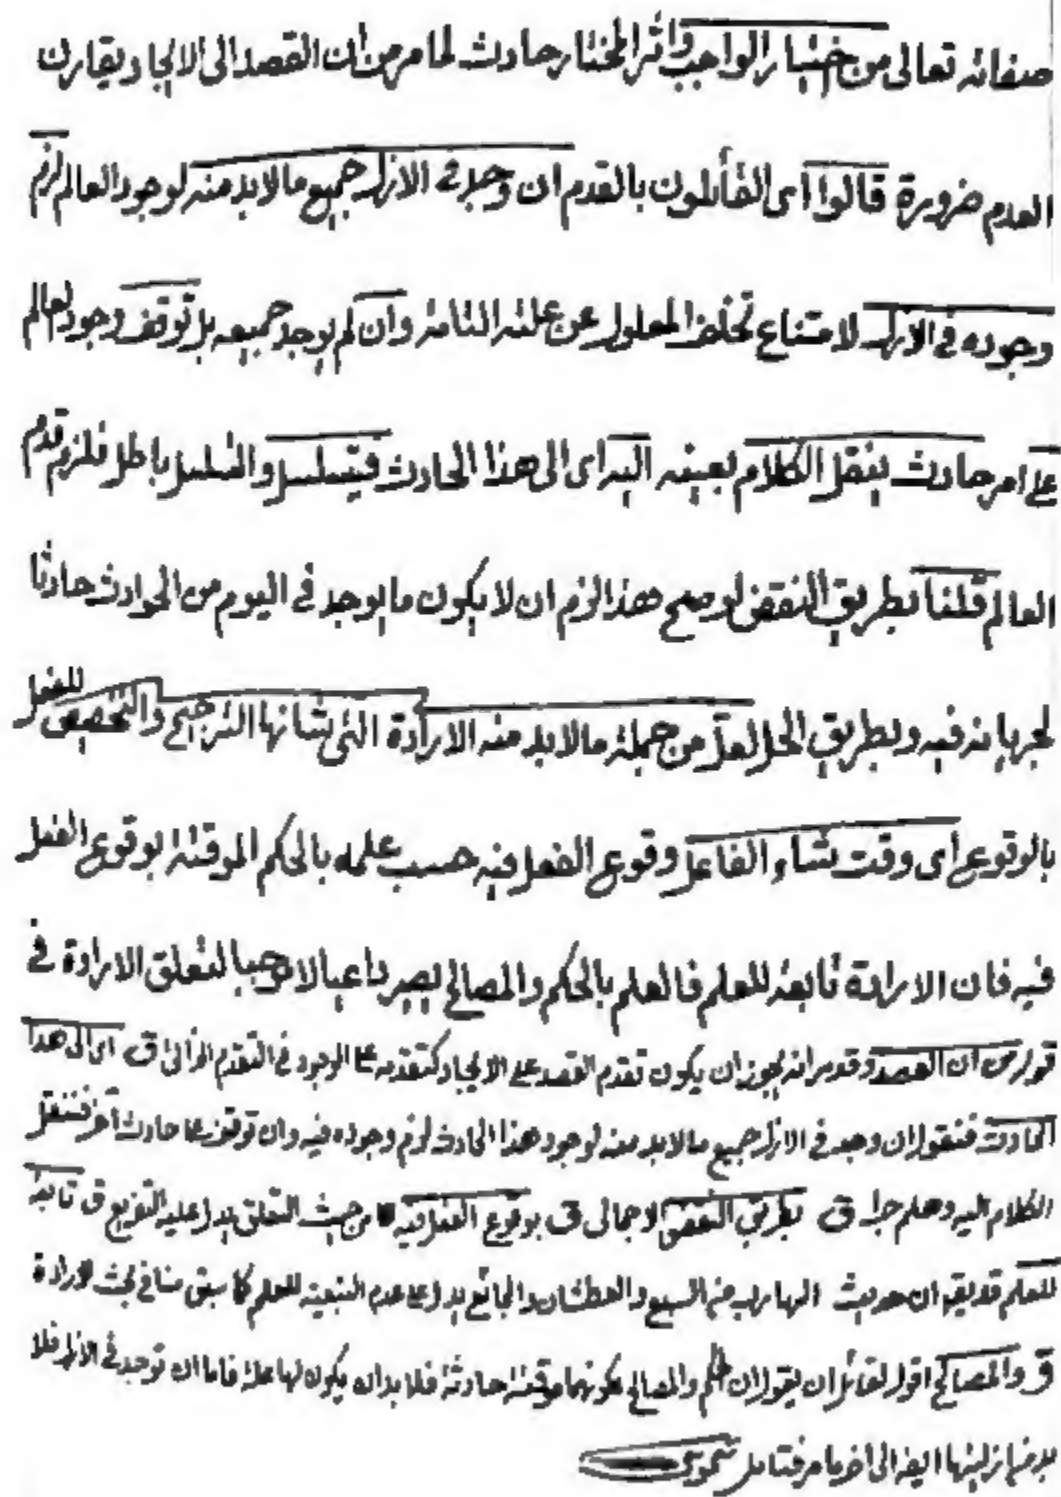 صفاته تعالى من اختيار الواجب واثر المختار حادث لما مر من أن القصد الى الايجاد يقارن
العدم ضرورة قالوا اى القائلون بالقدم ان وجد في الازل جميع ما لا بد منه لوجود العالم لزم
وجوده في الازل لامتناع تخلف المعلول عن علته التامة وان لم يوجد جميعه بل توقف وجود العالم
على امر حادث ينقل الكلام بعينه اليه اى الى هذا الحادث فيتسلسل والتسلسل باطل فلزم قدم
العالم قلنا بطريق النقض لو صح هذا لزم ان لا يكون ما يوجد في اليوم من الحوادث حادثا
لجريانه فيه وبطريق الحل لعل من جملة ما لا بد منه الارادة التى شانها الترجيح والتخصيص للفعل
بالوقوع اى وقت شاء الفاعل وقوع الفعل فيه حسب علمه بالحكم الموقتة بوقوع الفعل
فيه فان الارادة تابعة للعلم فالعلم بالحكم والمصالح يصير داعيا لا موجبا لتعلق الارادة في
قوله من ان القصد وقد مر انه يجوز ان يكون تقدم القصد على الايجاد كتقدمه على الوجود في التقدم الذاتى ق اى الى هذا
الحادث فنقول ان وجد في الازل جميع ما لا بد منه لوجود هذا الحادث لزم وجوده فيه وان توقف على حادث آخر فننقل
الكلام اليه وهلم جرا ق بطريق النقض الاجمالى ق بوقوع الفعل فيه من حيث التعلق يدل عليه التفريع ق تابعة
للعلم قد يقه ان حديث الهارب من السبع والعطشان والجائع يدل على عدم التبعية للعلم كما سبق منا في بحث الارادة
ق والمصالح اقول لقائل ان يقول ان الحكم والمصالح لكونهما موقتة حادثة فلا بد ان يكون لها علة فاما ان توجد في الازل فلا
بد من ازليتها ايضا الى اخر ما مر فتامل